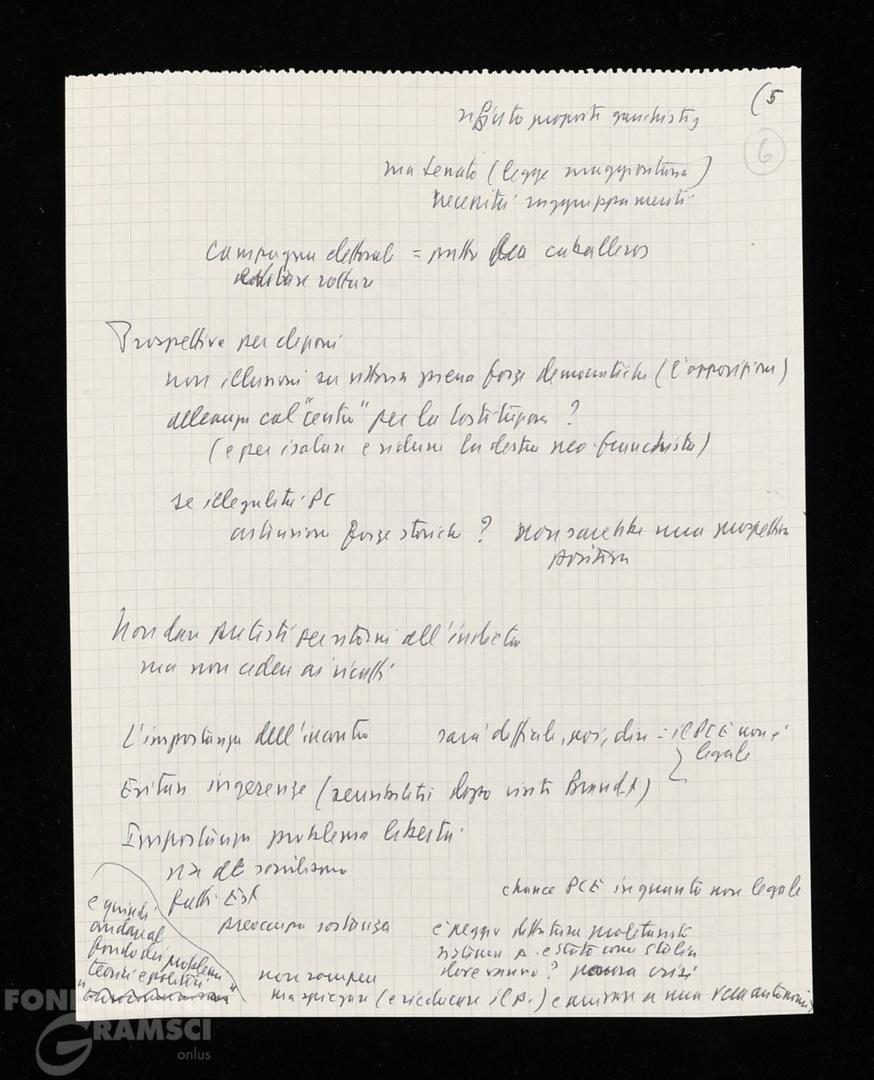 (5
6
rifiuto proposte gauchistes
ma Senato (legge maggioritaria)
necessità raggruppamenti
Campagna elettorale = patto da caballeros
evitare rotture
Prospettive per elezioni
non illusioni su vittoria piena forze democratiche (l'opposizione)
alleanza col "centro" per la Costituzione ?
(e per isolare e ridurre la destra neo-franchista)
se illegalità PC
astensione forze storiche ? non sarebbe una prospettiva
positiva
Non dare pretesti per ritorni all'indietro
ma non cedere ai ricatti
L'importanza dell'incontro sarà difficile, poi, dire : il PCE non è
legale
Evitare ingerenze (sensibilità dopo visita Brandt)
Importanza problema libertà
nel socialismo
fatti Est
chance PCE in quanto non legale
preoccupa sostanza
è peggio dittatura proletariato
sistema p. e stato come Stalin
dove vanno ? nuova crisi
e quindi
andare al
fondo dei problemi
teorici e politici
non rompere
ma spiegare (e rieducare il p.) e arrivare a una vera autonomia
FONDAZIONE
GRAMSCI
onlus